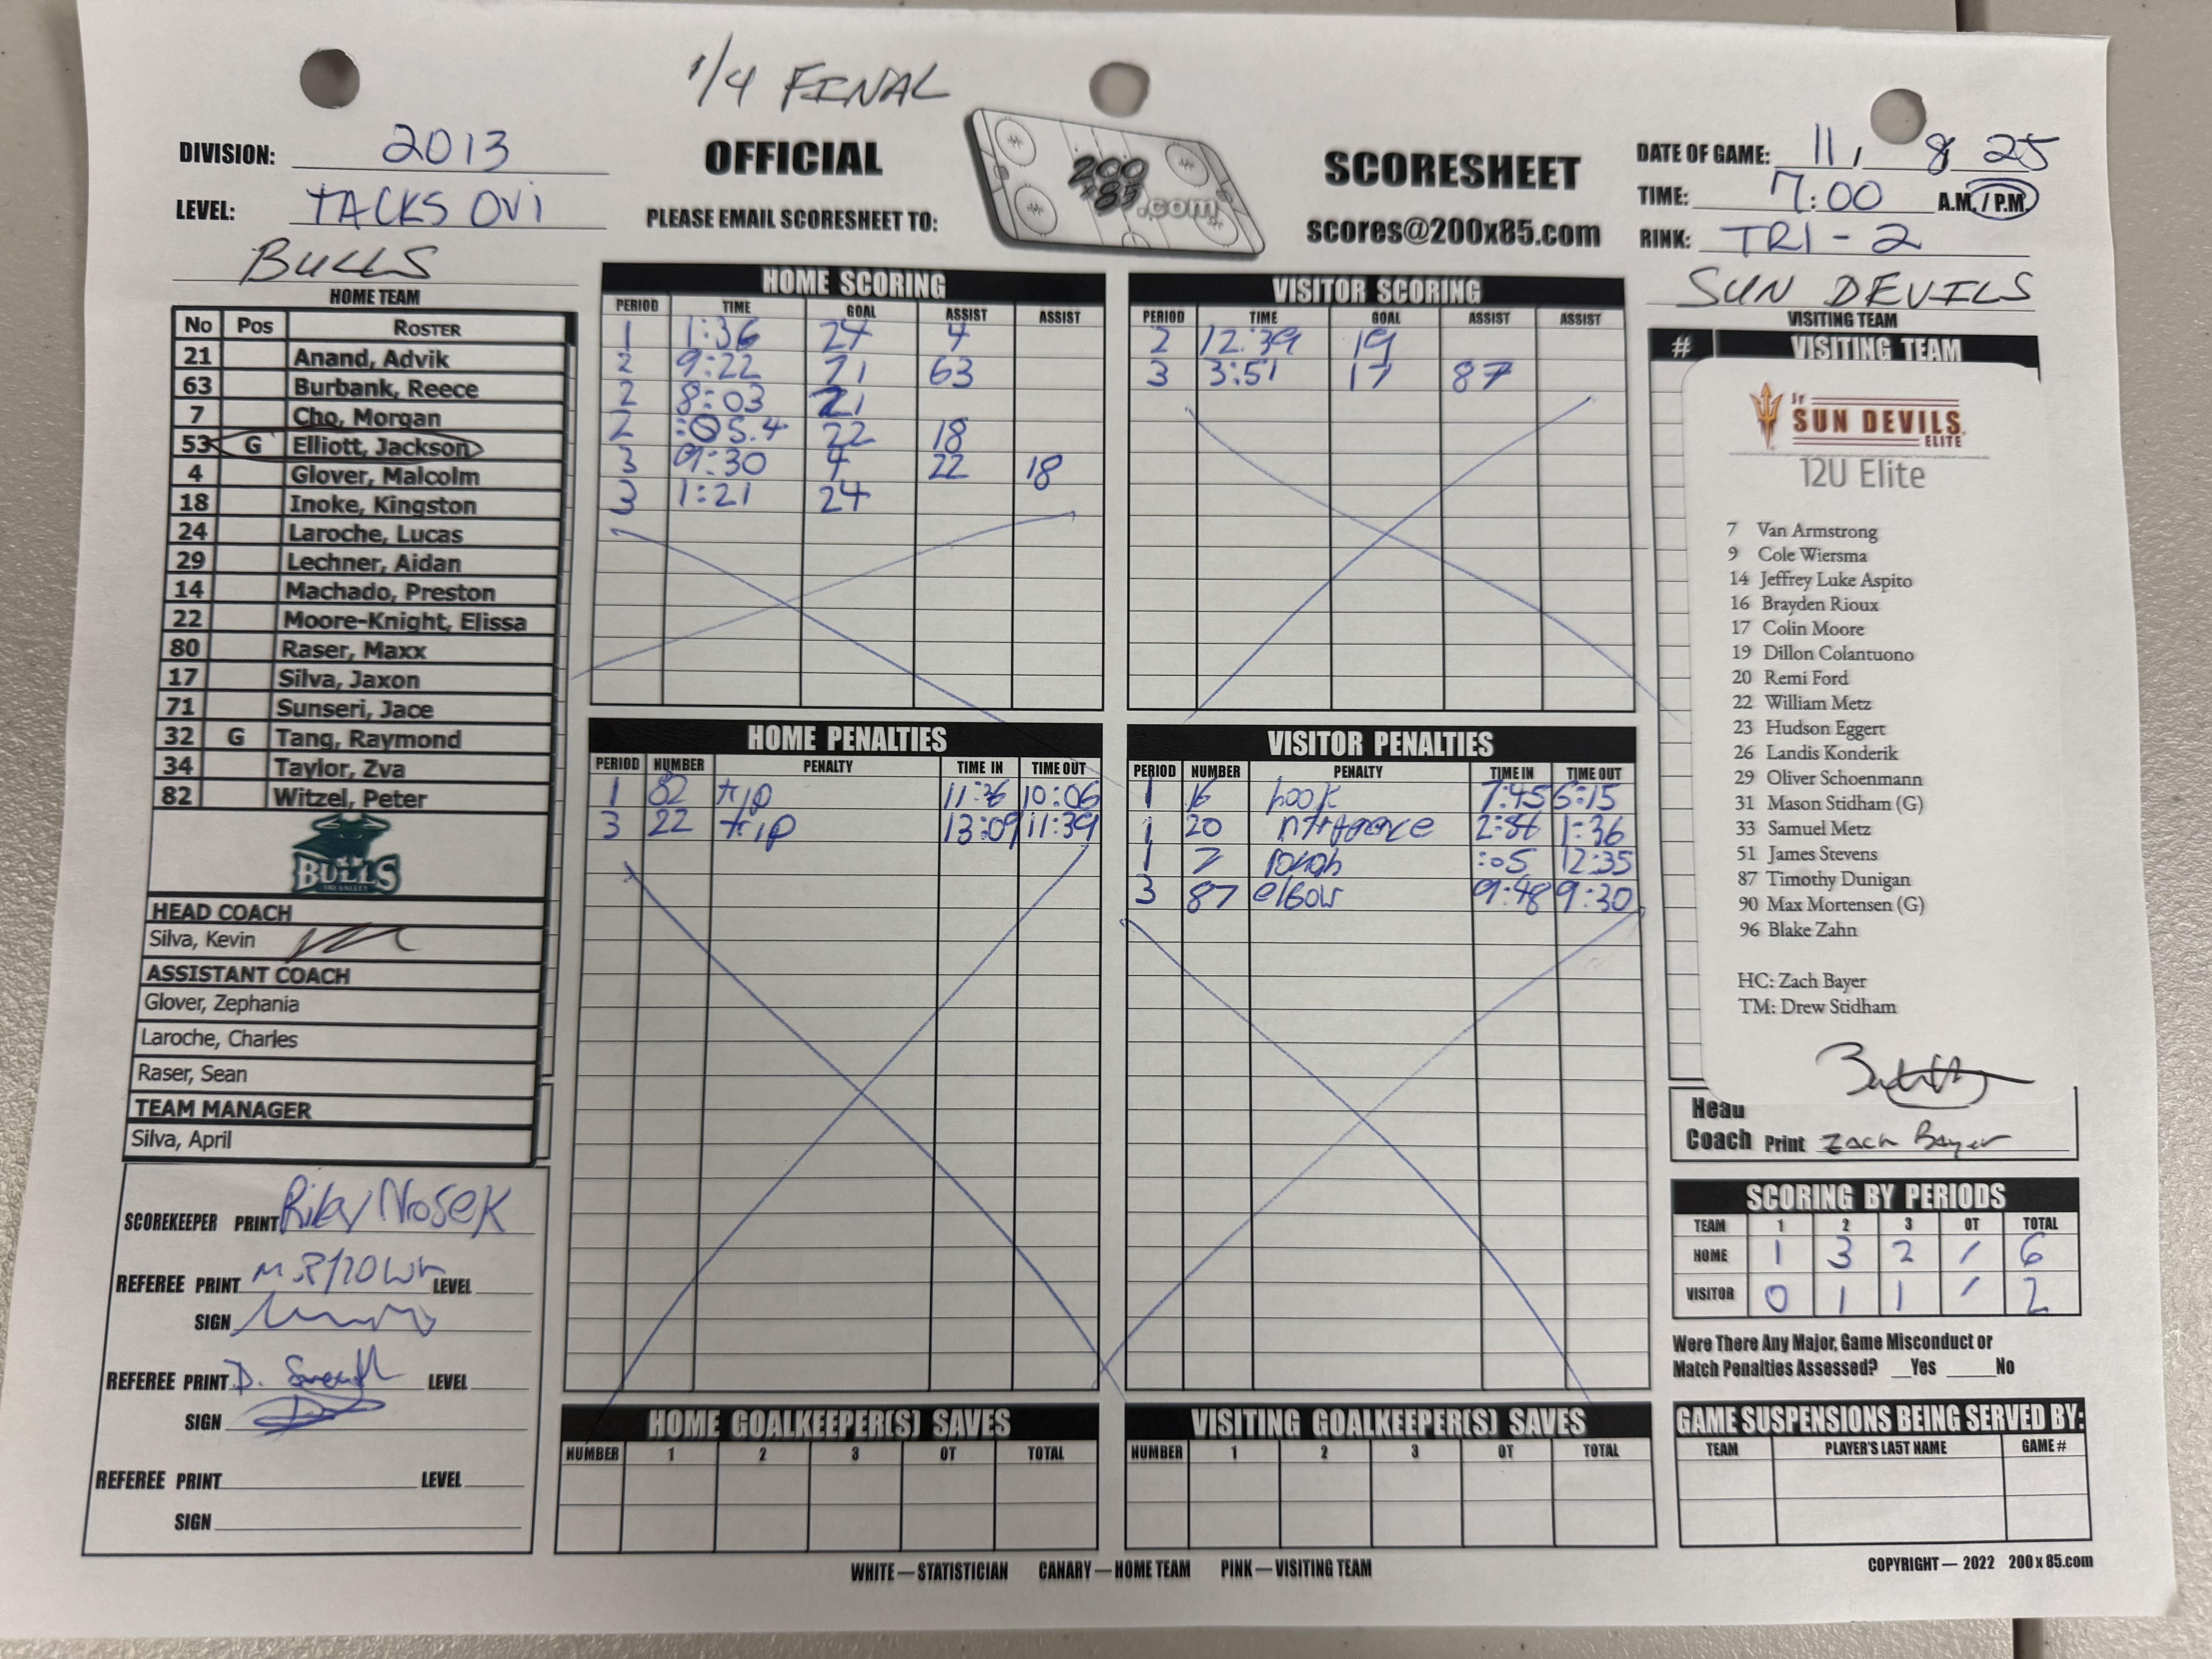 1/4 FINAL
DIVISION: 2013
LEVEL: TACKS OVI
OFFICIAL
PLEASE EMAIL SCORESHEET TO:
200
x85
.com
SCORESHEET
scores@200x85.com
DATE OF GAME: 11, 8, 25
TIME: 7:00 A.M. / P.M.
RINK: TRI-2
BULLS
HOME TEAM
No Pos ROSTER
21 Anand, Advik
63 Burbank, Reece
7 Cho, Morgan
53 G Elliott, Jackson
4 Glover, Malcolm
18 Inoke, Kingston
24 Laroche, Lucas
29 Lechner, Aidan
14 Machado, Preston
22 Moore-Knight, Elissa
80 Raser, Maxx
17 Silva, Jaxon
71 Sunseri, Jace
32 G Tang, Raymond
34 Taylor, Zva
82 Witzel, Peter
BULLS
TRI-VALLEY
HEAD COACH
Silva, Kevin
ASSISTANT COACH
Glover, Zephania
Laroche, Charles
Raser, Sean
TEAM MANAGER
Silva, April
SCOREKEEPER PRINT Riley Nosek
REFEREE PRINT LEVEL
SIGN
REFEREE PRINT D. LEVEL
SIGN
REFEREE PRINT LEVEL
SIGN
HOME SCORING
PERIOD TIME GOAL ASSIST ASSIST
1 1:36 24 4
2 9:22 71 63
2 8:03 21
2 :05.4 22 18
3 9:30 4 22 18
3 1:21 24
VISITOR SCORING
PERIOD TIME GOAL ASSIST ASSIST
2 12:39 19
3 3:51 17 87
HOME PENALTIES
PERIOD NUMBER PENALTY TIME IN TIME OUT
1 82 trip 11:36 10:06
3 22 trip 13:09 11:39
VISITOR PENALTIES
PERIOD NUMBER PENALTY TIME IN TIME OUT
1 16 hook 7:45 6:15
1 20 1:36
1 7 rough :05 12:35
3 87 elbow 9:48 9:30
HOME GOALKEEPER(S) SAVES
NUMBER 1 2 3 OT TOTAL
VISITING GOALKEEPER(S) SAVES
NUMBER 1 2 3 OT TOTAL
SUN DEVILS
VISITING TEAM
# VISITING TEAM
Jr
SUN DEVILS
ELITE
12U Elite
7 Van Armstrong
9 Cole Wiersma
14 Jeffrey Luke Aspito
16 Brayden Rioux
17 Colin Moore
19 Dillon Colantuono
20 Remi Ford
22 William Metz
23 Hudson Eggert
26 Landis Konderik
29 Oliver Schoenmann
31 Mason Stidham (G)
33 Samuel Metz
51 James Stevens
87 Timothy Dunigan
90 Max Mortensen (G)
96 Blake Zahn
HC: Zach Bayer
TM: Drew Stidham
Head
Coach Print Zach Bayer
SCORING BY PERIODS
TEAM 1 2 3 OT TOTAL
HOME 1 3 2 / 6
VISITOR 0 1 1 / 2
Were There Any Major, Game Misconduct or
Match Penalties Assessed? __Yes ____No
GAME SUSPENSIONS BEING SERVED BY:
TEAM PLAYER'S LAST NAME GAME #
WHITE—STATISTICIAN CANARY—HOME TEAM PINK—VISITING TEAM
COPYRIGHT — 2022 200 x 85.com